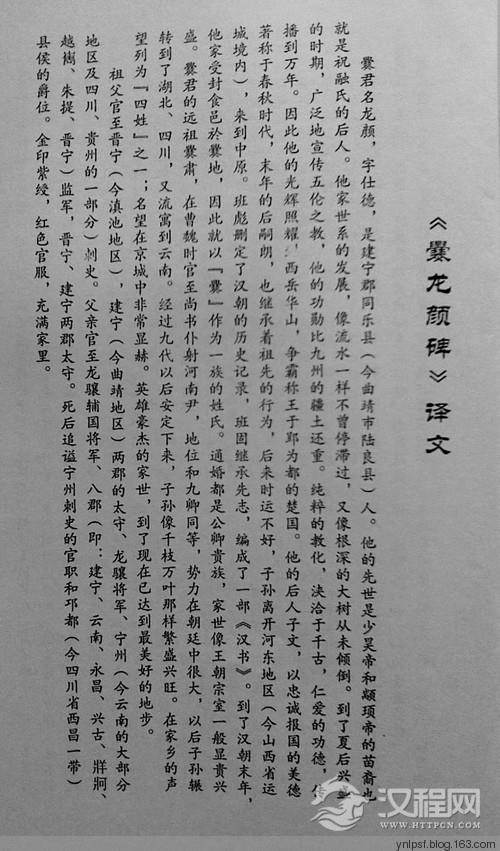 《爨龙颜碑》译文
爨君名龙颜，字仕德，是建宁郡同乐县（今曲靖市陆良县）人。他的先世是少昊帝和颛顼帝的苗裔也
就是祝融氏的后人。他家世系的发展，像流水一样不曾停滞过，又像根深的大树从未倾倒。到了夏后兴盛
的时期，广泛地宣传五伦之教，他的功勋比九州的疆土还重。纯粹的教化，浃洽于千古，仁爱的功德，传
播到万年。因此他的光辉照耀西岳华山，争霸称王于郢为都的楚国。他的后人子文，以忠诚报国的美德
著称于春秋时代，末年的后嗣朗，也继承着祖先的行为，后来时运不好，子孙离开河东地区（今山西省运
城境内），来到中原。班彪删定了汉朝的历史记录，班固继承先志，编成了一部《汉书》。到了汉朝末年，
他家受封食邑於爨地，因此就以『爨』作为一族的姓氏。通婚都是公卿贵族，家世像王朝宗室一般显贵兴
盛。爨君的远祖爨肃，在曹魏时官至尚书仆射河南尹，地位和九卿同等，势力在朝廷中很大，以后子孙辗
转到了湖北、四川，又流寓到云南。经过九代以后安定下来，子孙像千枝万叶那样繁盛兴旺。在家乡的声
望列为『四姓』之一；名望在京城中非常显赫。英雄豪杰的家世，到了现在已达到最美好的地步。
祖父官至晋宁（今滇池地区），建宁（今曲靖地区）两郡的太守、龙骧将军、宁州（今云南的大部分
地区及四川、贵州的一部分）刺史。父亲官至龙骧辅国将军、八郡（即：建宁、云南、永昌、兴古、牂牁、
越巂、朱提、晋宁）监军，晋宁、建宁两郡太守。死后追谥宁州刺史的官职和邛都（今四川省西昌一带）
县侯的爵位。金印紫绶，红色官服，充满家里。
汉程网
WWW.HTTPCN.COM
ynlpsf.blog.163.com